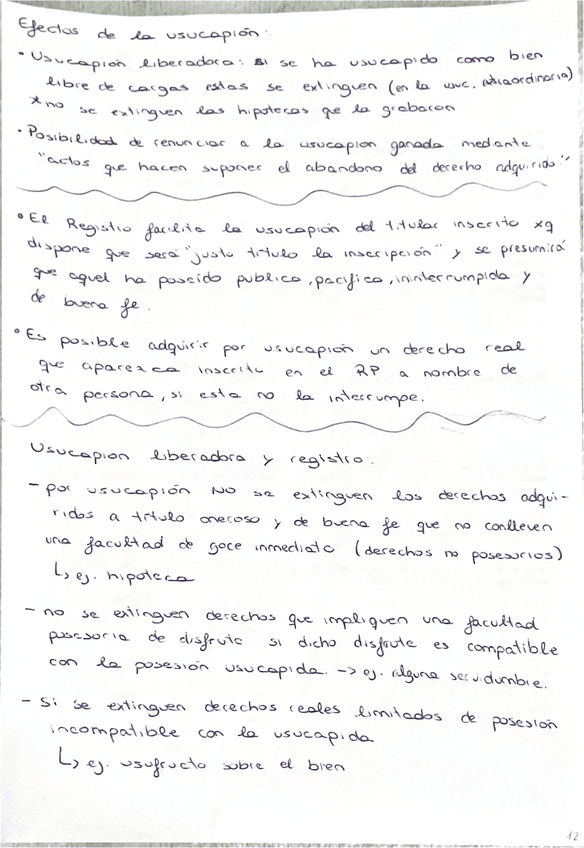 Efectos de la usucapión:
• Usucapión liberadora: si se ha usucapido como bien
libre de cargas estas se extinguen (en la usuc. extraordinaria)
* no se extinguen las hipotecas que la grabaron
• Posibilidad de renunciar a la usucapion ganada mediante
"actos que hacen suponer el abandono del derecho adquirido."
• El Registro facilita la usucapión del titular inscrito xq
dispone que será "justo título la inscripción" y se presumirá
que aquel ha poseido publica, pacifica, ininterrumpida y
de buena fe.
• Es posible adquirir por usucapión un derecho real
que aparezca inscrito en el RP a nombre de
otra persona, si esta no la interrumpe.
Usucapion liberadora y registro:
- por usucapión NO se extinguen los derechos adqui-
ridos a título oneroso y de buena fe que no conlleven
una facultad de goce inmediato (derechos no posesorios)
↳ ej. hipoteca
- no se extinguen derechos que impliquen una facultad
posesoria de disfrute si dicho disfrute es compatible
con la posesión usucapida. -> ej. alguna servidumbre.
- si se extinguen derechos reales limitados de posesión
incompatible con la usucapida
↳ ej. usufructo sobre el bien
12